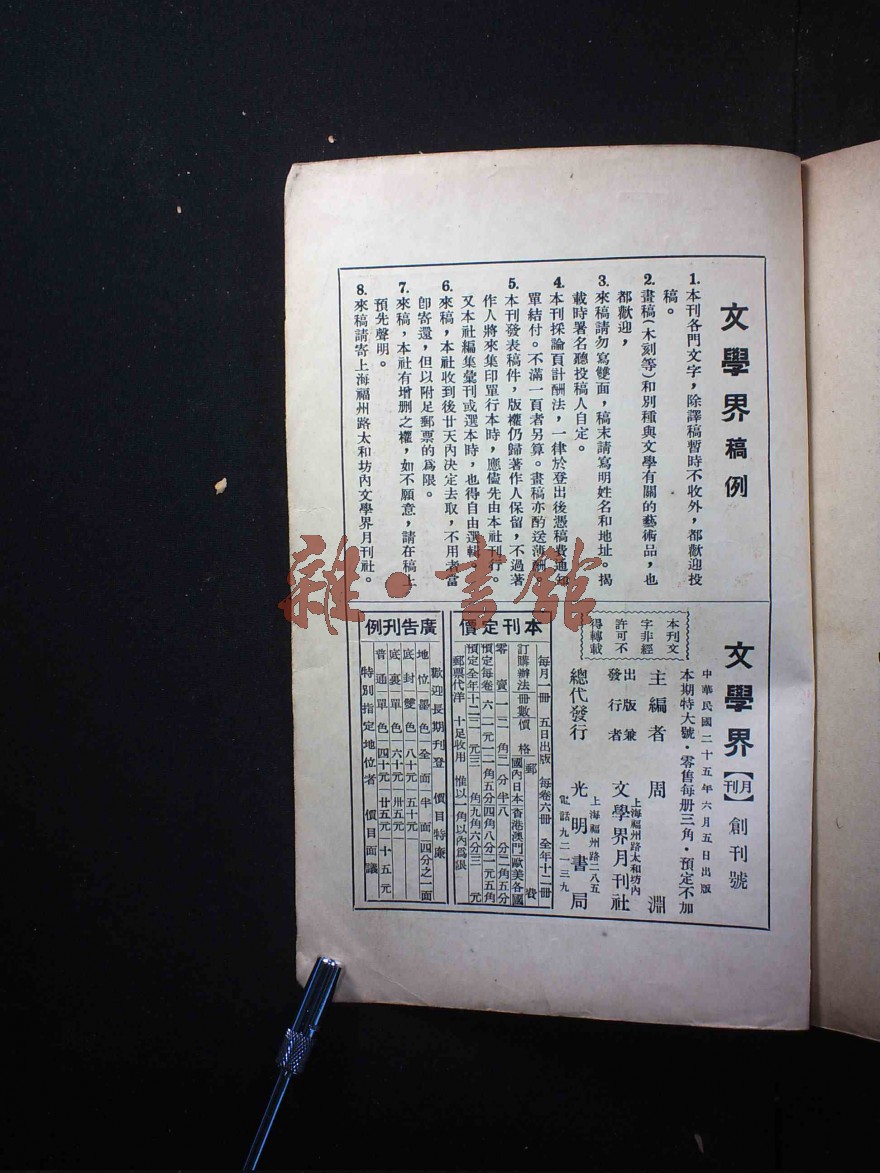 文學界稿例
1. 本刊各門文字，除譯稿暫時不收外，都歡迎投
稿。
2. 畫稿(木刻等)和別種與文學有關的藝術品，也
都歡迎，
3. 來稿請勿寫雙面，稿末請寫明姓名和地址。揭
載時署名聽投稿人自定。
4. 本刊採論頁計酬法，一律於登出後憑稿費通知
單結付。不滿一頁者另算。畫稿亦酌送薄酬。
5. 本刊發表稿件，版權仍歸著作人保留，不過著
作人將來集印單行本時，應儘先由本社刊行。
又本社編集彙刊或選本時，也得自由選輯。
6. 來稿，本社收到後廿天內決定去取，不用者當
卽寄還，但以附足郵票的爲限。
7. 來稿，本社有增删之權，如不願意，請在稿上
預先聲明。
8. 來稿請寄上海福州路太和坊內文學界月刊社。
文學界【月刊】創刊號
中華民國二十五年六月五日出版
本期特大號・零售每册三角・預定不加
本刊文
字非經
許可不
得轉載
主編者 周淵
出版兼
發行者 文學界月刊社
上海福州路太和坊內
總代發行 光明書局
上海福州路二八五
電話九二一三九
本刊定價
每月一冊 五日出版 每卷六冊 全年十二冊
訂購辦法 冊數 價格 郵費
國內日本 香港澳門 歐美各國
零賣 一 二角 二分半 八分 二角五分
預定每卷 六 一元一角 一角五分 四角八分 一元五角
預定全年 十二 二元二角 三角 九角六分 三元
郵票代洋 十足收用 惟以一角以內爲限
廣告刊例
歡迎長期刊登 價目特廉
地位 墨色 全面 半面 四分之一面
底封 雙色 八十元 五十元
底裏 單色 六十元 卅五元
普通 單色 四十元 廿五元 十五元
特別指定地位者 價目面議
雜・書館